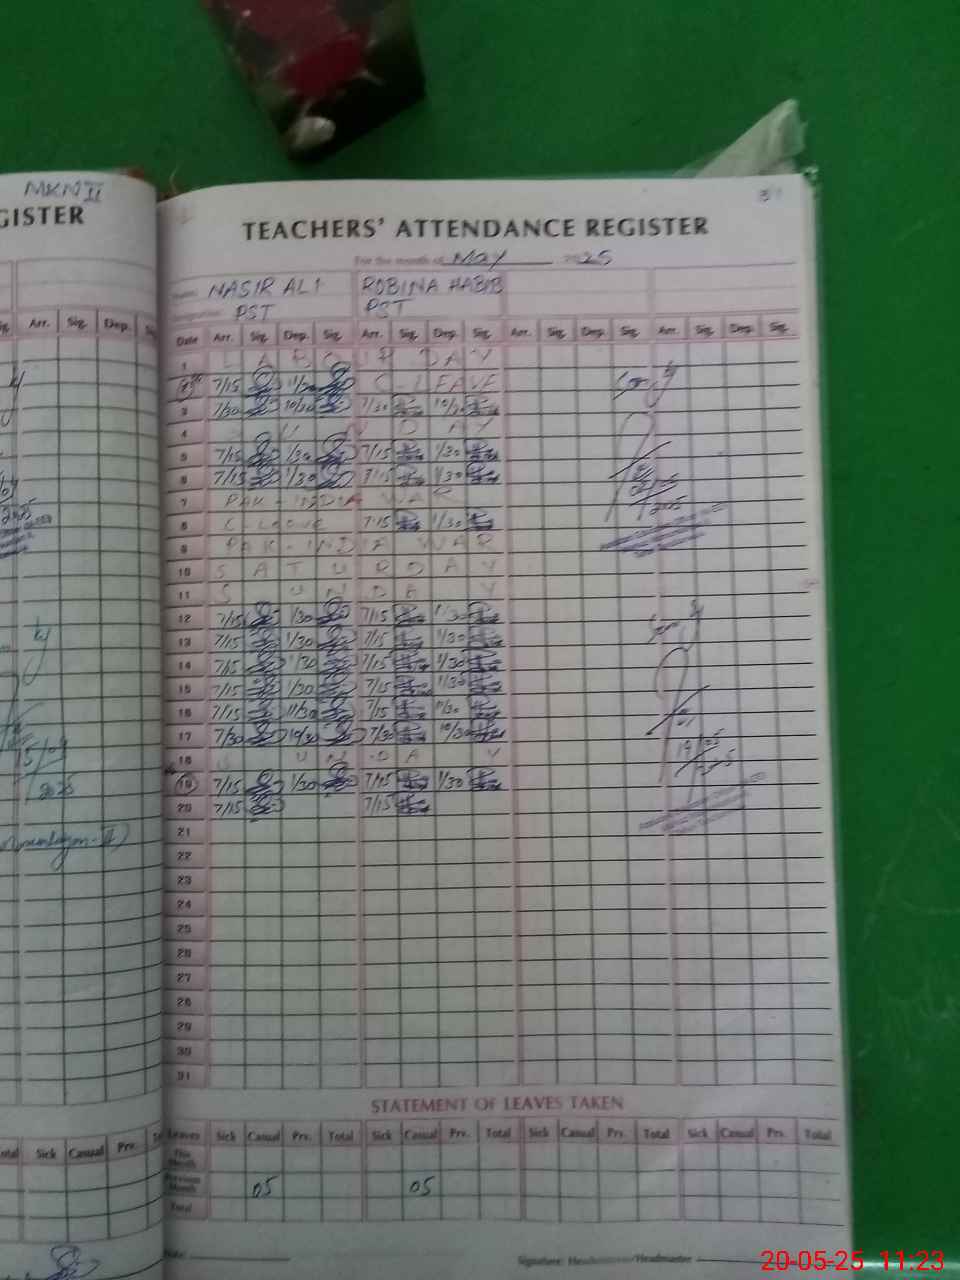 MKN II
GISTER
Arr. Sig. Dep.
TEACHERS' ATTENDANCE REGISTER
For the month of May 2025
NASIR ALI ROBINA HABIB
PST PST
Date Arr. Sig. Dep. Sig. Arr. Sig. Dep. Sig. Arr. Sig. Dep. Sig. Arr. Sig. Dep. Sig.
1 LABOUR DAY
2 7/15 C-LEAVE
3 7/30 10/30 7/30 10/30
4 SUNDAY
5 7/15 1/30 7/15 1/30
6 7/15 1/30 7/15 1/30
7 PAK-INDIA WAR
8 C-Leave 7/15 1/30
9 PAK-INDIA WAR
10 SATURDAY
11 SUNDAY
12 7/15 1/30 7/15 1/30
13 7/15 1/30 7/15 1/30
14 7/15 1/30 7/15 1/30
15 7/15 1/30 7/15 1/30
16 7/15 11/30 7/15 11/30
17 7/30 10/30 7/30 10/30
18 SUNDAY
19 7/15 1/30 7/15 1/30
20 7/15 7/15
21
22
23
24
25
26
27
28
29
30
31
19/05
2025
15/04
2025
STATEMENT OF LEAVES TAKEN
Leaves Sick Casual Prv. Total Sick Casual Prv. Total Sick Casual Prv. Total Sick Casual Prv. Total
This Month
Previous Month 05 05
Total
Sick Casual Prv.
Date:
Signature: Headmistress/Headmaster
20-05-25 11:23